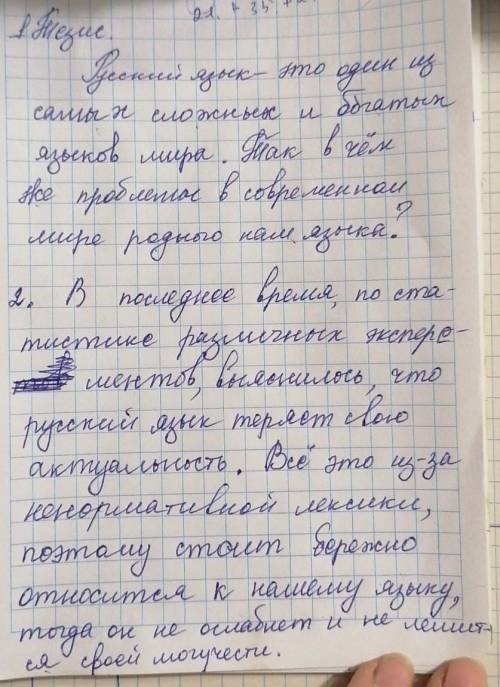 1. Тезис.
Русский язык - это один из
самых сложных и богатых
языков мира. Так в чём
же проблемы в современном
мире родного нам языка?
2. В последнее время, по ста-
тистике различных экспере-
ментов, выяснилось, что
русский язык теряет свою
актуальность. Всё это из-за
ненормативной лексики,
поэтому стоит бережно
относится к нашему языку,
тогда он не ослабнет и не лешит-
ся своей могучести.